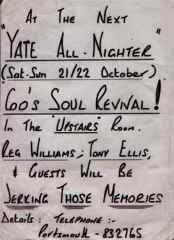 At The Next
"Yate All-Nighter"
(Sat-Sun 21/22 October)
60's Soul Revival!
In The "Upstairs" Room.
Reg Williams, Tony Ellis,
& Guests Will Be
Jerking Those Memories
Details: Telephone:-
Portsmouth - 832765